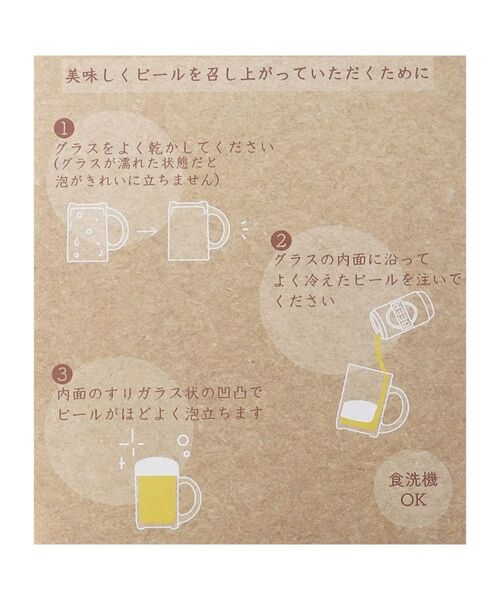 美味しくビールを召し上がっていただくために
1
グラスをよく乾かしてください
(グラスが濡れた状態だと
泡がきれいに立ちません)
2
グラスの内面に沿って
よく冷えたビールを注いで
ください
BEER
3
内面のすりガラス状の凹凸で
ビールがほどよく泡立ちます
食洗機
OK